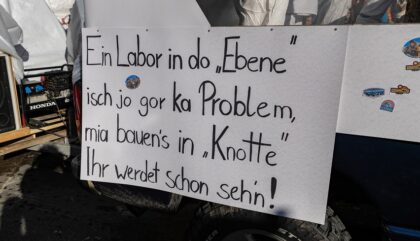 Ein Labor in do „Ebene"
isch jo gor ka Problem,
mia bauen's in „Knotte"
Ihr werdet schon seh'n!
HONDA